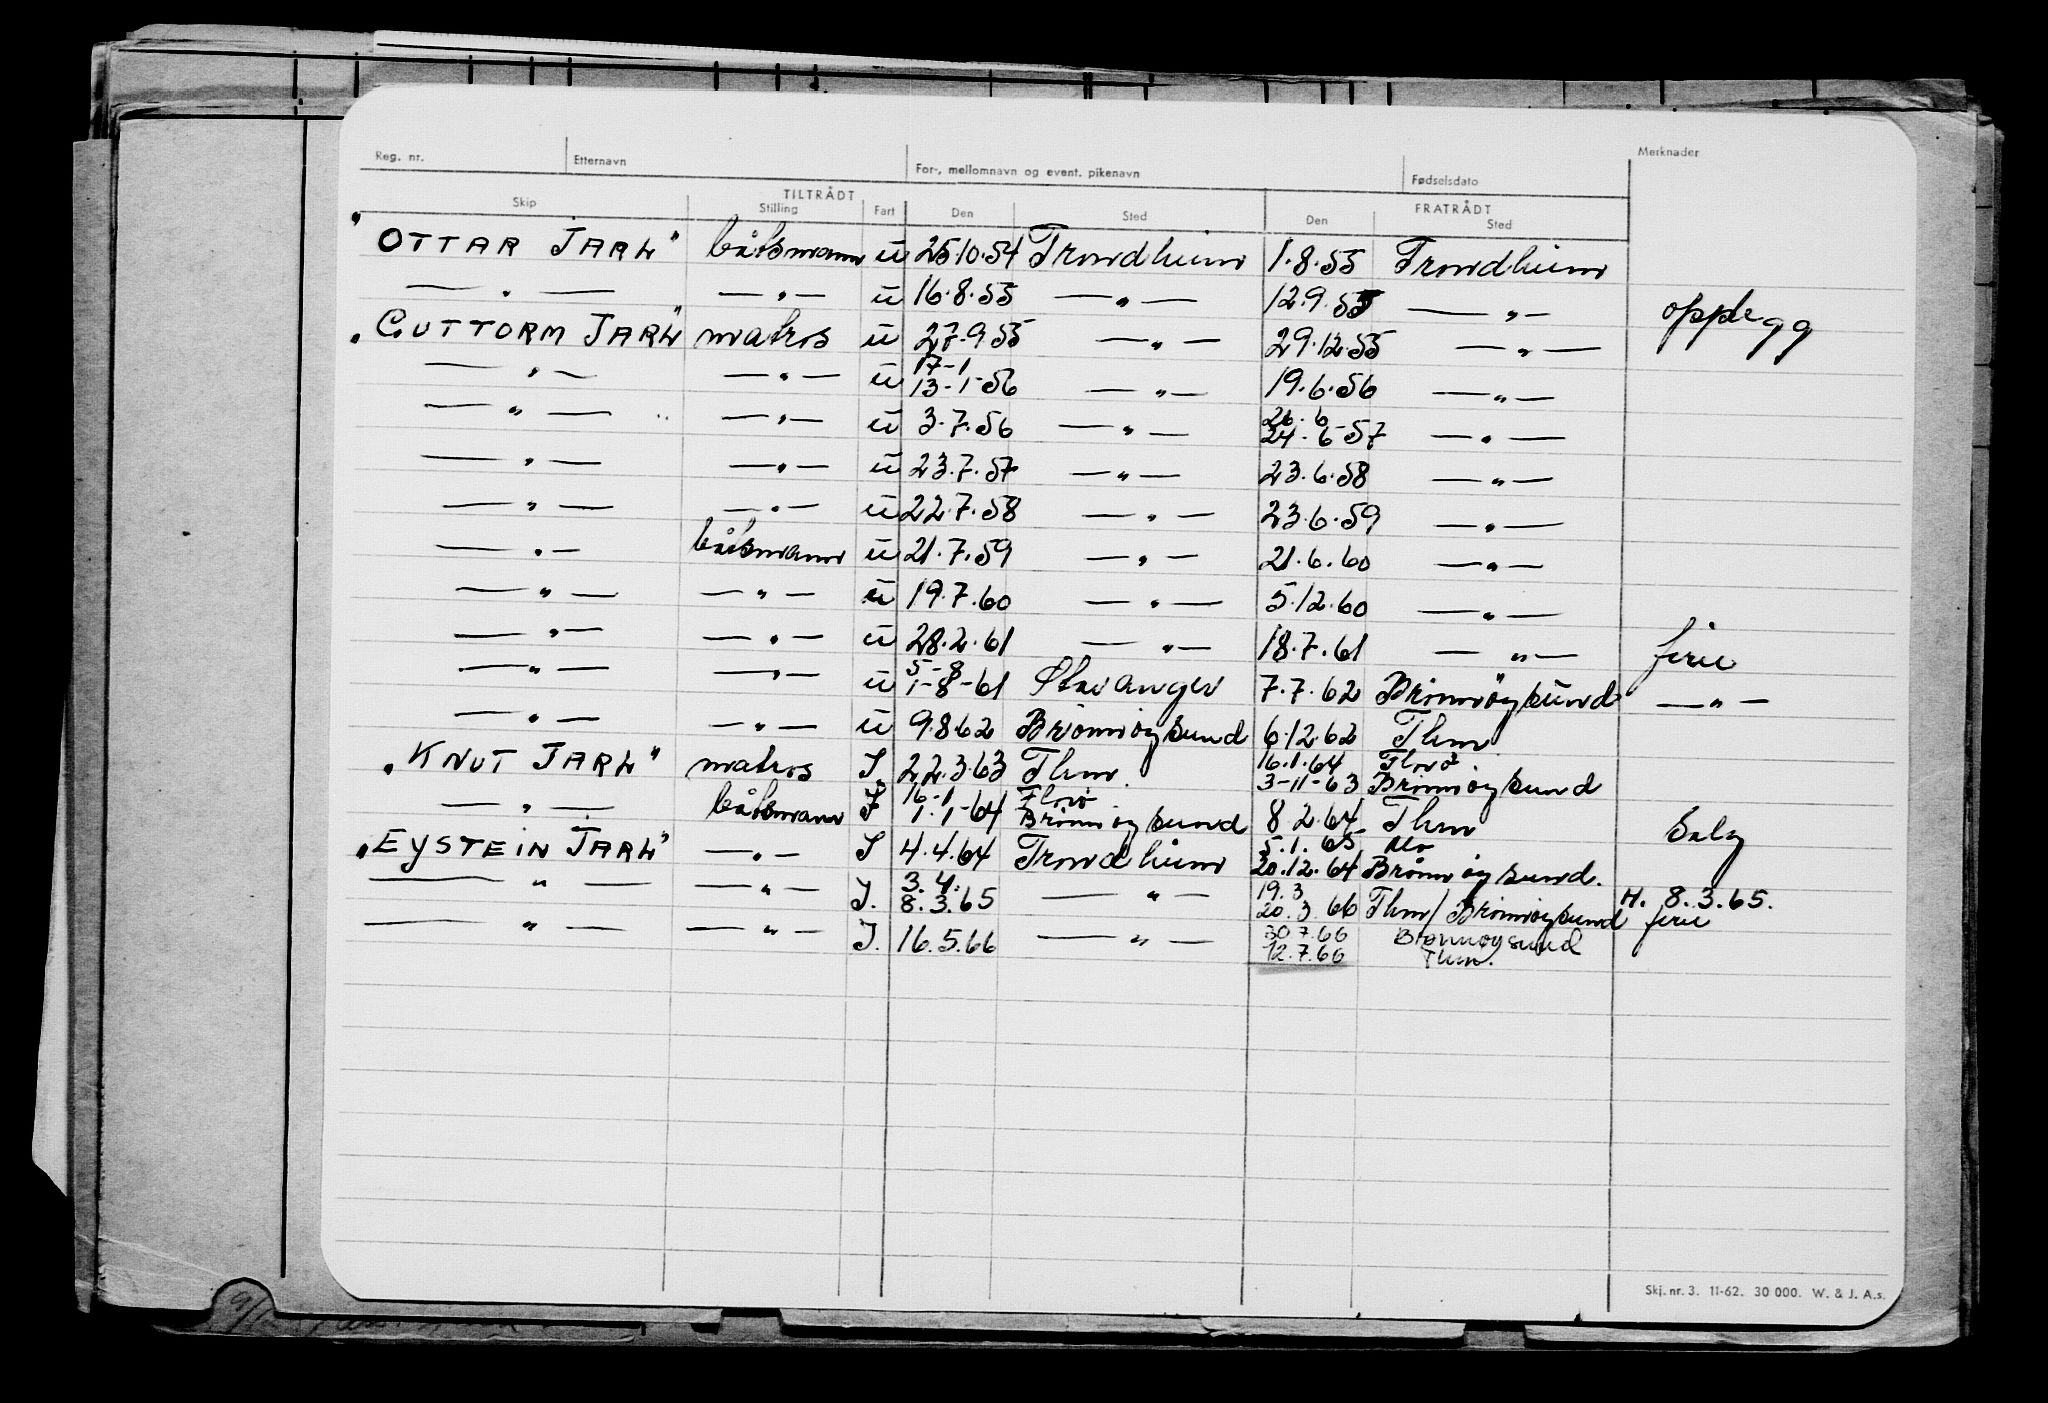 Reg. nr. Etternavn For-, mellomnavn og event. pikenavn Fødselsdato Merknader
TILTRÅDT FRATRÅDT
Skip Stilling Fart Den Sted Den Sted
"OTTAR JARL" båtsmann u 25.10.54 Trondheim 1.8.55 Trondheim
— " — — " — u 16.8.55 — " — 12.9.55 — " — opplegg
"GUTTORM JARL" matros u 27.9.55 — " — 29.12.55 — " —
17-1
— " — — " — u 13-1-56 — " — 19.6.56 — " —
26-6
— " — — " — u 3.7.56 — " — 24-6-57 — " —
— " — — " — u 23.7.57 — " — 23.6.58 — " —
— " — — " — u 22.7.58 — " — 23.6.59 — " —
— " — båtsmann u 21.7.59 — " — 21.6.60 — " —
— " — — " — u 19.7.60 — " — 5.12.60 — " —
— " — — " — u 28.2.61 — " — 18.7.61 — " — ferie
5-8
— " — — " — u 1-8-61 Stavanger 7.7.62 Brønnøysund — " —
— " — — " — u 9.8.62 Brønnøysund 6.12.62 Thm
16.1.64 Florø
"KNUT JARL" matros I. 22.3.63 Thm. 3-11-63 Brønnøysund
16-1 Florø
— " — båtsmann I 1.1-64 Brønnøysund 8.2.64 Thm Salg
5.1.65
"EYSTEIN JARL" — " — I 4.4.64 Trondheim 20.12.64 Brønnøysund.
3.4. 19.3 H. 8.3.65.
— " — — " — I. 8.3.65 — " — 20.3.66 Thm/Brønnøysund ferie
30.7.66 Brønnøysund
— " — — " — I. 16.5.66 — " — 12.7.66 Thm.
Skj. nr. 3. 11-62. 30 000. W. & J. A.s.